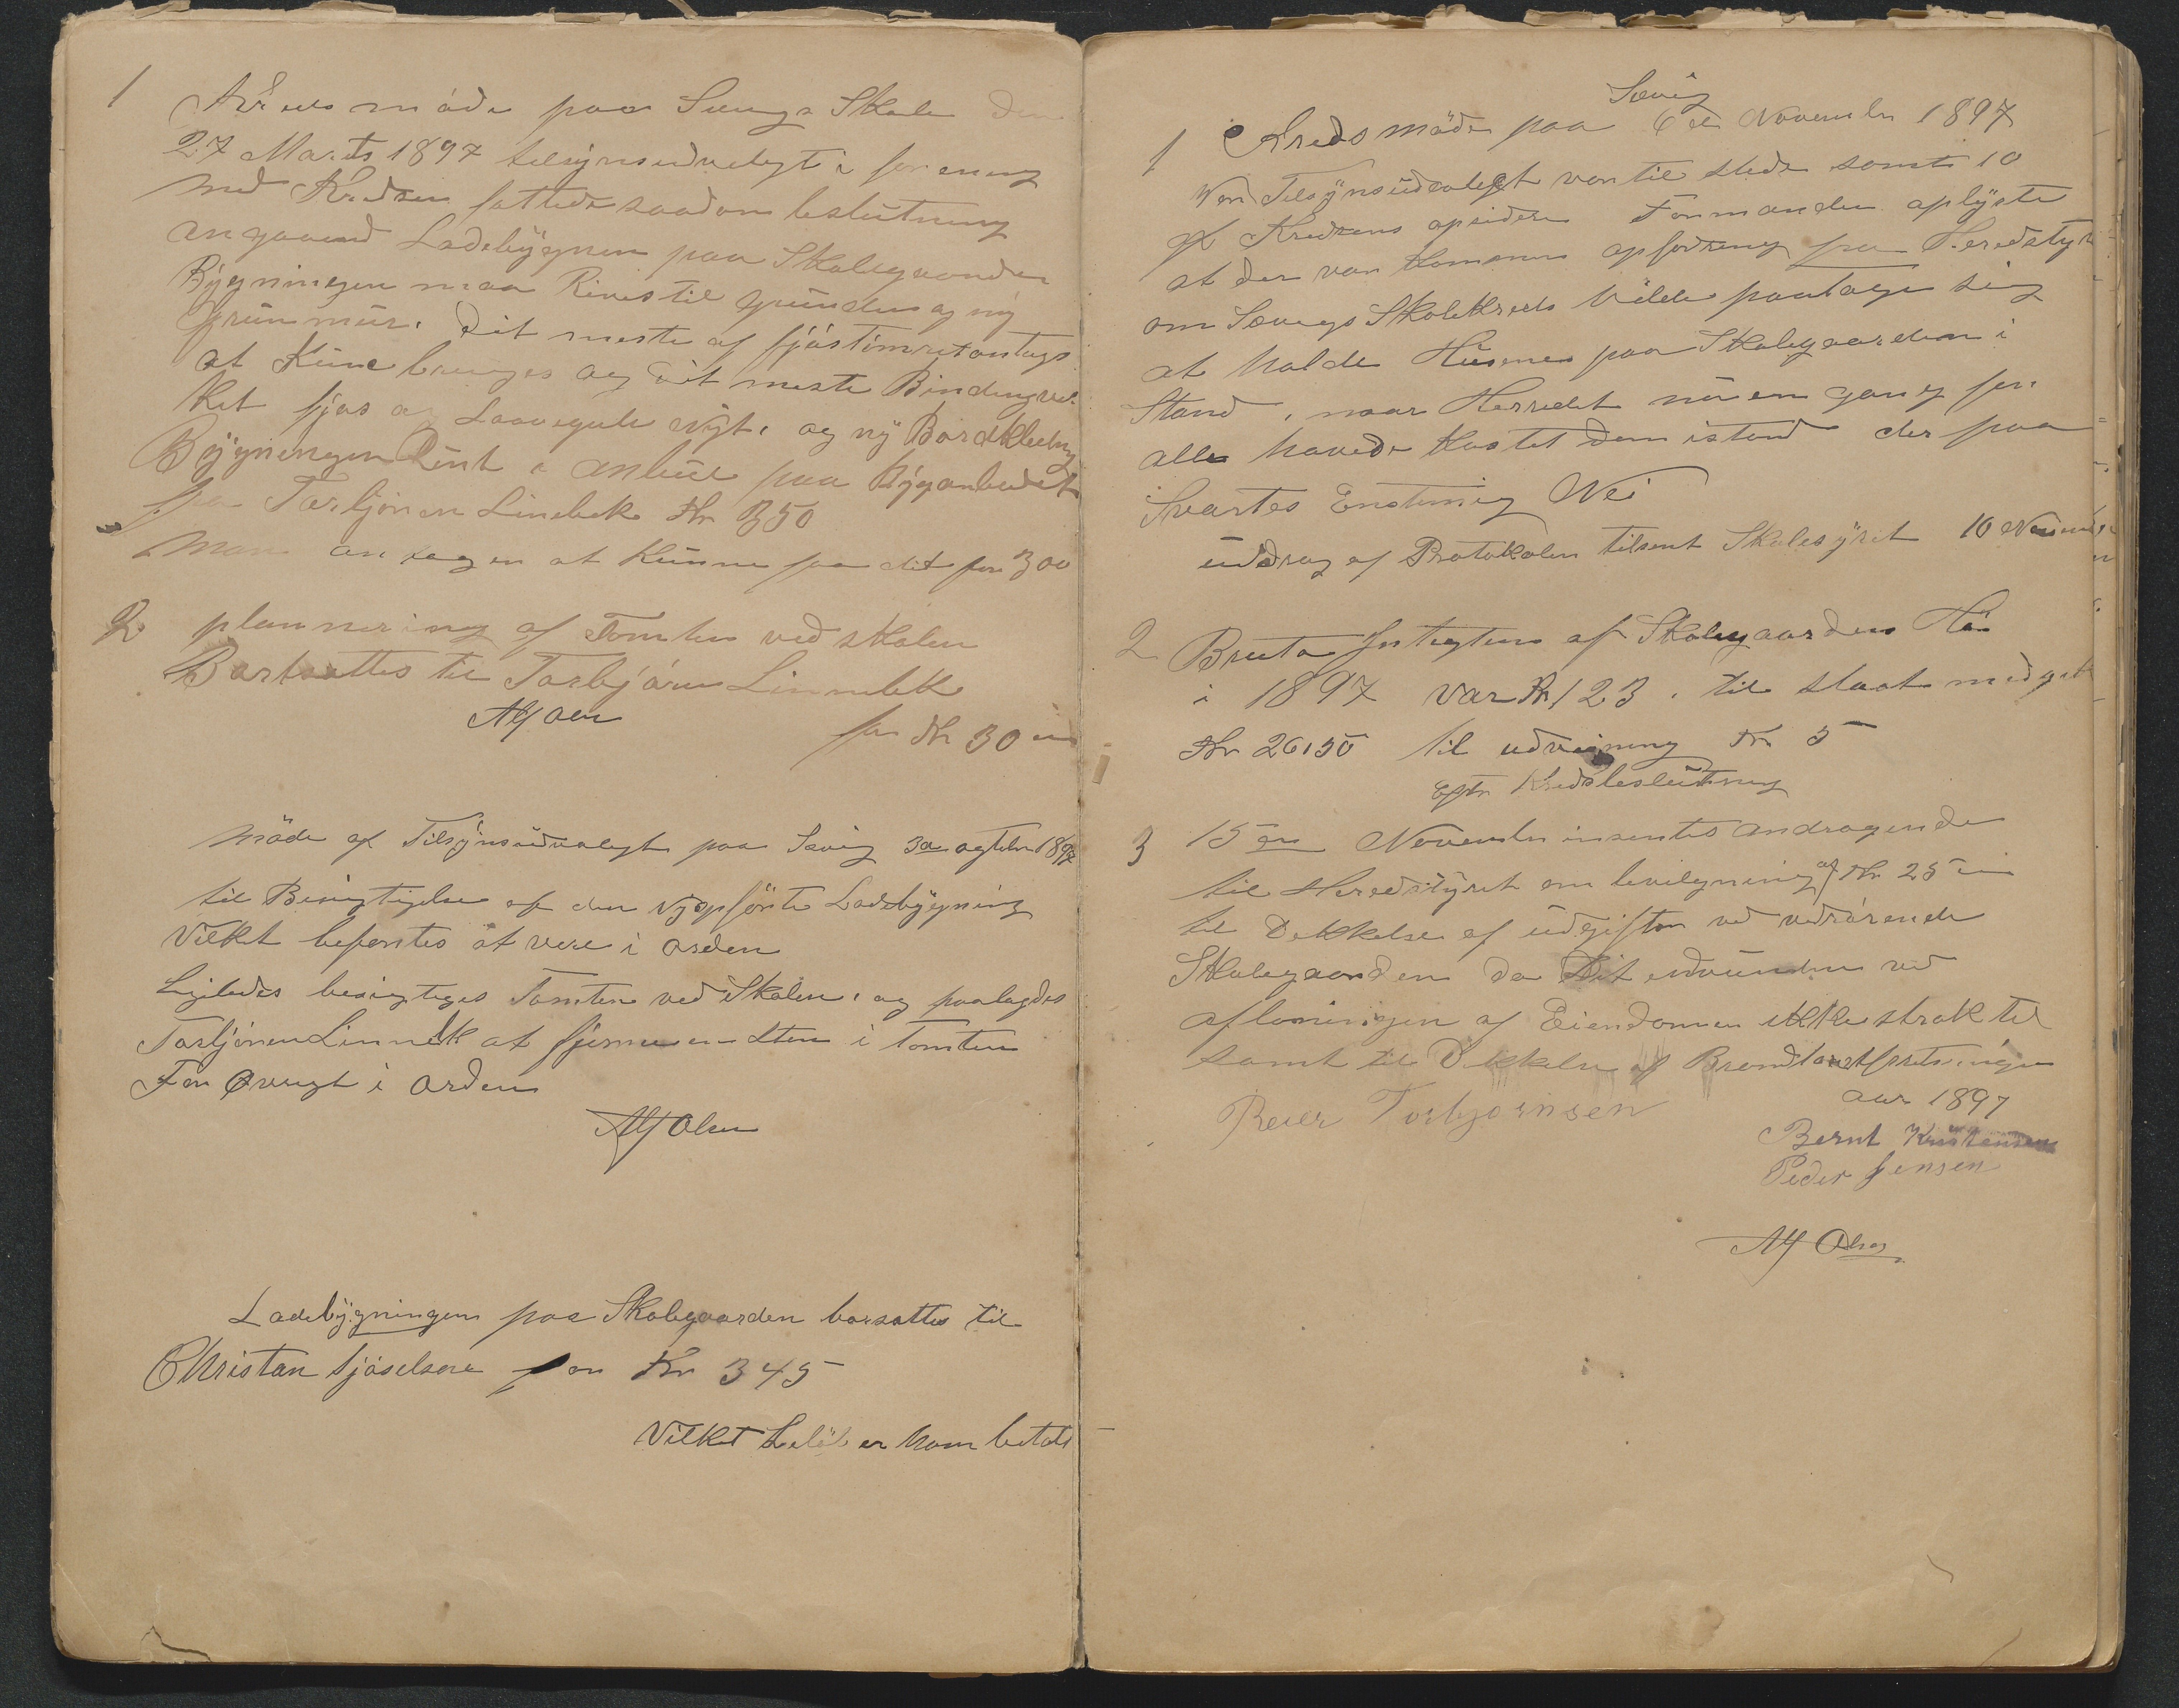 1 møde paa Sævigs Skole den
27 Marts 1897 tilsynsudvalgt i forening
med Kredsen fattedes saadan beslutning
angaaend Ladebygnin paa Skolegaarden
Bygningen maa Rives til grunden og ny
Grünmür. Dit meste af fjøstimret antags
at Kune bruges og dit meste Bindingver
ket fjøs og Laavegulv nyt. og ny Bordkledning
Bygningen Rünt. anbüd paa Bygarbeidet
fra Torbjørn Linebek Kr 350
Man antager at Kunne faa dit for 300
2 plannering af Tomten ved skolen
Bortsattes til Torbjørn Linnebek
for Kr 30
Alf Olsen
Møde af Tilsynsüdvalgt paa Sævig 1897
til Besigtigelse af den nyopførte Ladebygning
Vilket befantes at vere i orden
Ligeledes besigtiges Tomten ved Skolen. og paalagdes
Torbjørn Linnebek at fjerne en Sten i Tomten
For Øvrigt i orden
Alf Olsen
Ladebygningen paa Skolegaarden borsattes til
Christan for Kr 345
Vilket beløb er ham betalt
Sævig
1 Kredsmøde paa 6 November 1897
Tilsynsüdvalgt var til stede samt 10
af Kredsens opsidere Formanden oplyste
at der var Kommen opfordring fra Heredstyr
om Sævigs Skolekreds vilde paatage sig
at holde Hüsene paa Skolegaarden i
Stand, naar Herredet nü en gang for
alle havde Kostet dem istand der paa
Svartes Enstemig Nei
üddrag af Protokolen tilsent Skolestyret 10 November
2 Bruto Integten af Skolegaardens Hø
i 1897 var Kr 123. til slaat medgik
Kr 26,50 til udvisning Kr 5
Efter Kredsbeslütning
3 15 November insentes Andragende
til Heredstyret om bevilgning af Kr 25
til Dekkelse af üdgifter ved vedrørende
Skolegaarden da Dit indvundne ved
af Eiendommen ikke strak til
samt til Dekkelse af Brand
aar 1897
Reier Torbjørnsen
Bernt Kristensen
Peder Jensen
Alf Olsen